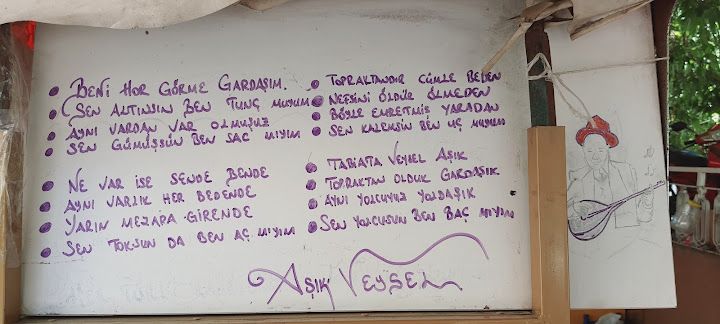 BENİ HOR GÖRME GARDAŞIM.
SEN ALTINSIN BEN TUNÇ MUYUM
AYNI VARDAN VAR OLMUŞUZ
SEN GÜMÜŞSÜN BEN SAC MIYIM
NE VAR İSE SENDE BENDE
AYNI VARLIK HER BEDENDE
YARIN MEZARA GİRENDE
SEN TOKSUN DA BEN AÇ MIYIM
TOPRAKTANDIR CÜMLE BEDEN
NEFSİNİ ÖLDÜR ÖLMEDEN
BÖYLE EMRETMİŞ YARADAN
SEN KALEMSİN BEN UÇ MUYUM
TABİATA VEYSEL AŞIK
TOPRAKTAN OLDUK GARDAŞIK
AYNI YOLCUYUZ YOLDAŞIK
SEN YOLCUSUN BEN BAÇ MIYIM
AŞIK VEYSEL